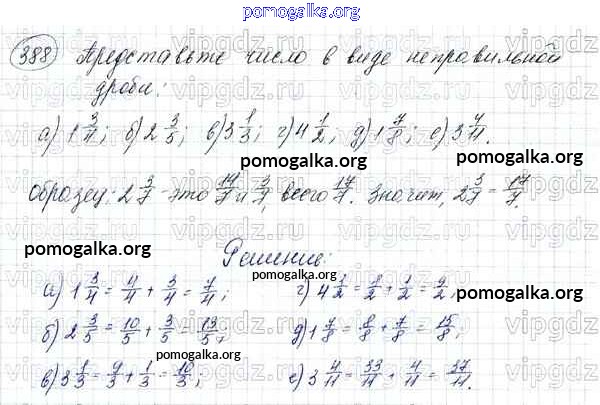 pomogalka.org
388 Представьте число в виде неправильной
дроби:
а) 1 3/4; б) 2 3/5; в) 3 1/3; г) 4 1/2; д) 1 7/8; е) 3 4/11.
pomogalka.org pomogalka.org
образец: 2 3/7 - это 14/7 и 3/7, всего 17/7. Значит, 2 3/7 = 17/7.
pomogalka.org Решение: pomogalka.org
pomogalka.org
а) 1 3/4 = 4/4 + 3/4 = 7/4; г) 4 1/2 = 8/2 + 1/2 = 9/2,
pomogalka.org
б) 2 3/5 = 10/5 + 3/5 = 13/5; д) 1 7/8 = 8/8 + 7/8 = 15/8;
pomogalka.org
в) 3 1/3 = 9/3 + 1/3 = 10/3; е) 3 4/11 = 33/11 + 4/11 = 37/11.